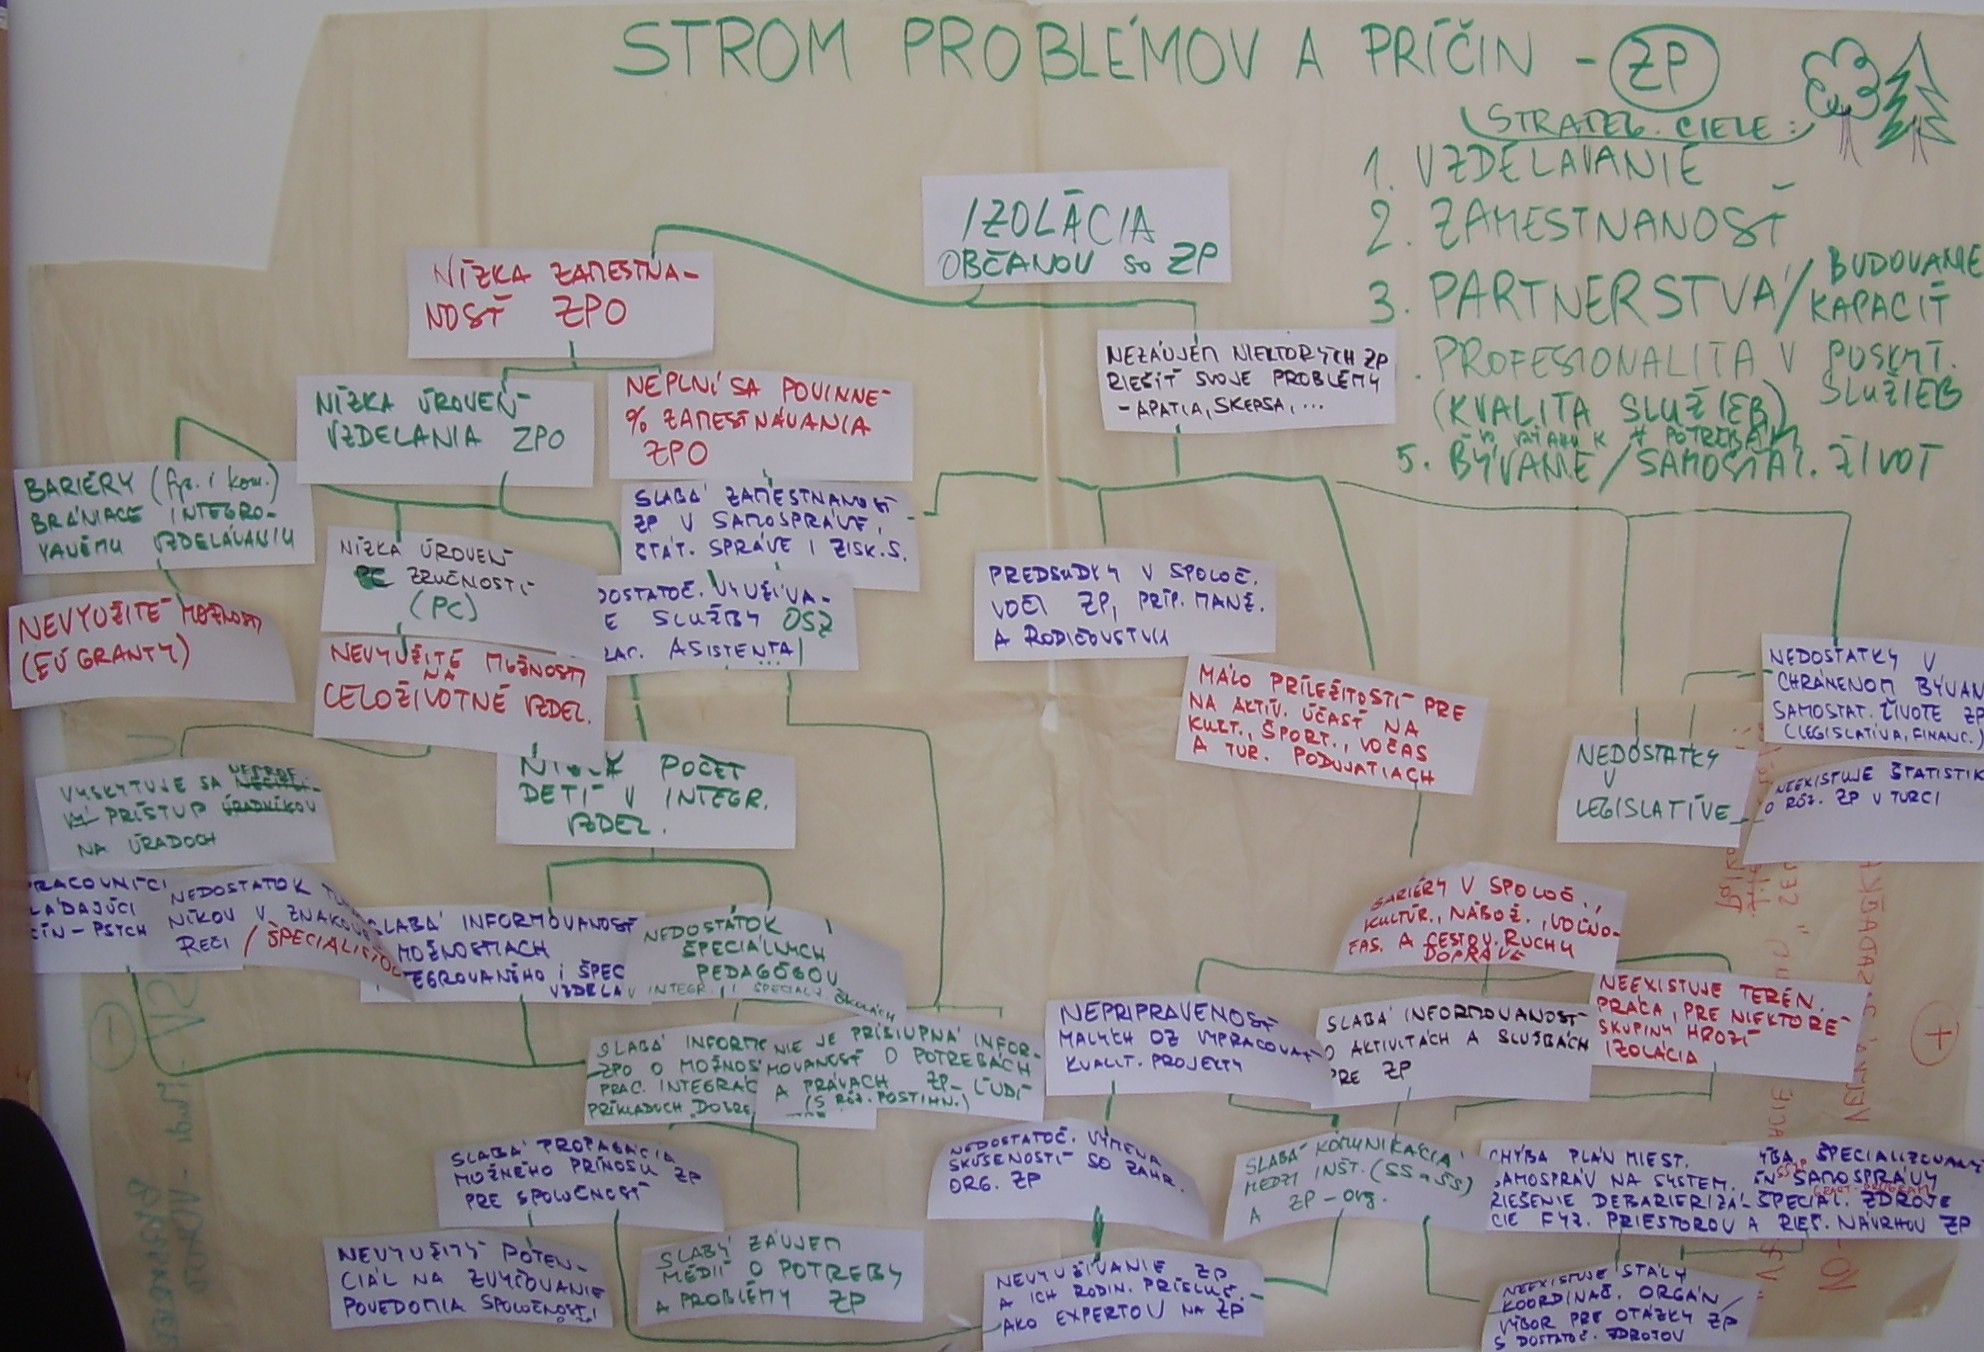 STROM PROBLÉMOV A PRÍČIN - ZP
STRATEG. CIELE:
1. VZDELAVANIE
2. ZAMESTNANOSŤ
3. PARTNERSTVÁ/BUDOVANIE
KAPACÍT
PROFESIONALITA V POSKYT.
SLUŽIEB
(KVALITA SLUŽIEB)
VO VZŤAHU K POTREBÁM
5. BÝVANIE/SAMOSTAT. ŽIVOT
IZOLÁCIA
OBČANOV SO ZP
NÍZKA ZAMESTNA-
NOSŤ ZPO
NEZÁUJEM NIEKTORÝCH ZP
RIEŠIŤ SVOJE PROBLÉMY
- APATIA, SKEPSA, ...
NÍZKA ÚROVEŇ
VZDELANIA ZPO
NEPLNÍ SA POVINNÉ
% ZAMESTNÁVANIA
ZPO
BARIÉRY (fyz. i kom.)
BRÁNIACE INTEGRO-
VANÉMU VZDELÁVANIU
SLABÁ ZAMESTNANOSŤ
ZP V SAMOSPRÁVE,
ŠTÁT. SPRÁVE I ZISK. S.
NÍZKA ÚROVEŇ
ZRUČNOSTÍ
(PC)
DOSTATOČ. VYUŽÍVA-
E SLUŽBY OSZ
RAC. ASISTENTA
...
PREDSUDKY V SPOLOČ.
VOČI ZP, PRÍP. MANŽ.
A RODIČOVSTVU
NEVYUŽITÉ MOŽNOSTI
(EÚ GRANTY)
NEVYUŽITÉ MOŽNOSTI
NA
CELOŽIVOTNÉ VZDEL.
MÁLO PRÍLEŽITOSTÍ PRE
NA AKTÍV. ÚČASŤ NA
KULT., ŠPORT., VOČAS
A TUR. PODUJATIACH
NEDOSTATKY V
CHRÁNENOM BÝVAN
SAMOSTAT. ŽIVOTE ZP
(LEGISLATÍVA, FINANC.)
NEDOSTATKY
V
LEGISLATÍVE
NEEXISTUJE ŠTATISTIK
O RÔZ. ZP V TURCI
VYSKYTUJE SA NEPROF.
PRÍSTUP ÚRADNÍKOV
NA ÚRADOCH
NÍZKY POČET
DETÍ V INTEGR.
VZDEL.
PRACOVNÍCI
LÁDAJÚCI
ČÍN - PSYCH
NEDOSTATOK TLMOČ
NÍKOV V ZNAKOVEJ
REČI / ŠPECIALISTOV
SLABÁ INFORMOVANOSŤ
MOŽNOSTIACH
EGROVANÉHO I ŠPEC
VZDELA
NEDOSTATOK
ŠPECIÁLNYCH
PEDAGÓGOV
V INTEGR. I ŠPECIAL. ŠKOLÁCH
BARIÉRY V SPOLOČ.,
KULTÚR., NÁBOŽ., VOĽNO-
ČAS. A CESTOV. RUCHU
DOPRAVE
NEPRIPRAVENOSŤ
MALÝCH OZ VYPRACOVAŤ
KVALIT. PROJEKTY
SLABÁ INFORMOVANOSŤ
O AKTIVITÁCH A SLUŽBÁCH
PRE ZP
NEEXISTUJE TERÉN.
PRÁCA, PRE NIEKTORÉ
SKUPINY HROZÍ
IZOLÁCIA
SLABÁ INFORM
ZPO O MOŽNOS
PRAC. INTEGRÁC
PRÍKLADOCH "DOBRE
NIE JE PRÍSTUPNÁ INFOR-
MOVANOSŤ O POTREBÁCH
A PRÁVACH ZP-ĽUDÍ
(S RÔZ. POSTIHN.)
SLABÁ PROPAGÁCIA
MOŽNÉHO PRÍNOSU ZP
PRE SPOLOČNOSŤ
NEDOSTATOČ. VÝMENA
SKÚSENOSTÍ SO ZAHR.
ORG. ZP
SLABÁ KOMUNIKÁCIA
MEDZI INŠT. (SS a ŠS)
A ZP - org.
CHÝBA PLÁN MIEST.
SAMOSPRÁV NA SYSTEM.
RIEŠENIE DEBARIERIZÁ-
CIE FYZ. PRIESTOROV
ÝBA ŠPECIALIZOVANÝ
SAMOSPRÁVY
ŠPECIAL. ZDROJE
A RIEŠ. NÁVRHOV ZP
NEVYUŽITÝ POTEN-
CIÁL NA ZVYŠOVANIE
POVEDOMIA SPOLOČNOSTI
SLABÝ ZÁUJEM
MÉDIÍ O POTREBY
A PROBLÉMY ZP
NEVYUŽÍVANIE ZP
A ICH RODIN. PRÍSLUŠ.
AKO EXPERTOV NA ZP
NEEXISTUJE STÁLY
KOORDINAČ. ORGÁN/
VÝBOR PRE OTÁZKY ZP
S DOSTATOČ. ZDROJOV